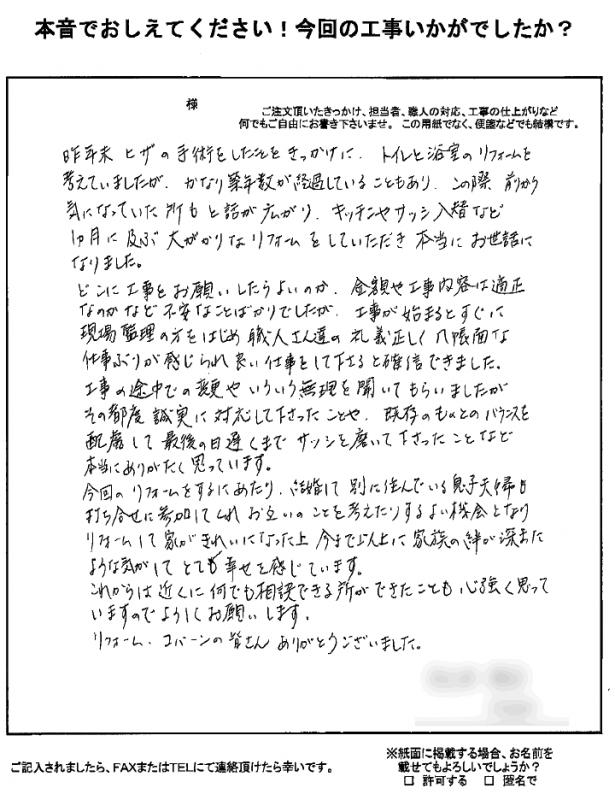 本音でおしえてください！今回の工事いかがでしたか？
様
ご注文頂いたきっかけ、担当者、職人の対応、工事の仕上がりなど
何でもご自由にお書き下さいませ。この用紙でなく、便箋などでも結構です。
昨年末 ヒザの手術をしたことをきっかけに、トイレと浴室のリフォームを
考えていましたが、かなり築年数が経過していることもあり、この際 前から
気になっていた所もと話が広がり、キッチンやサッシ入替など
1ヶ月に及ぶ 大がかりなリフォームをしていただき 本当にお世話に
なりました。
どこに工事をお願いしたらよいのか、金額や工事内容は適正
なのかなど不安なことばかりでしたが、工事が始まるとすぐに
現場監理の方をはじめ 職人さん達の礼義正しく几帳面な
仕事ぶりが感じられ良い仕事をして下さると確信できました。
工事の途中での変更やいろいろ無理を聞いてもらいましたが
その都度 誠実に対応して下さったことや、既存のものとのバランスを
配慮して最後の日遅くまで サッシを磨いて下さったことなど
本当にありがたく思っています。
今回のリフォームをするにあたり、結婚して別に住んでいる息子夫婦も
打ち合せに参加してくれ お互いのことを考えたりするよい機会となり
リフォームして家がきれいになった上 今まで以上に 家族の絆が深また
ような気がして とても幸せを感じています。
これからは 近くに何でも相談できる所ができたことも 心強く思って
いますのでよろしくお願いします。
リフォーム．コバーンの皆さん ありがとうございました。
ご記入されましたら、FAXまたはTELにて連絡頂けたら幸いです。
※紙面に掲載する場合、お名前を
載せてもよろしいでしょうか？
□ 許可する □ 匿名で